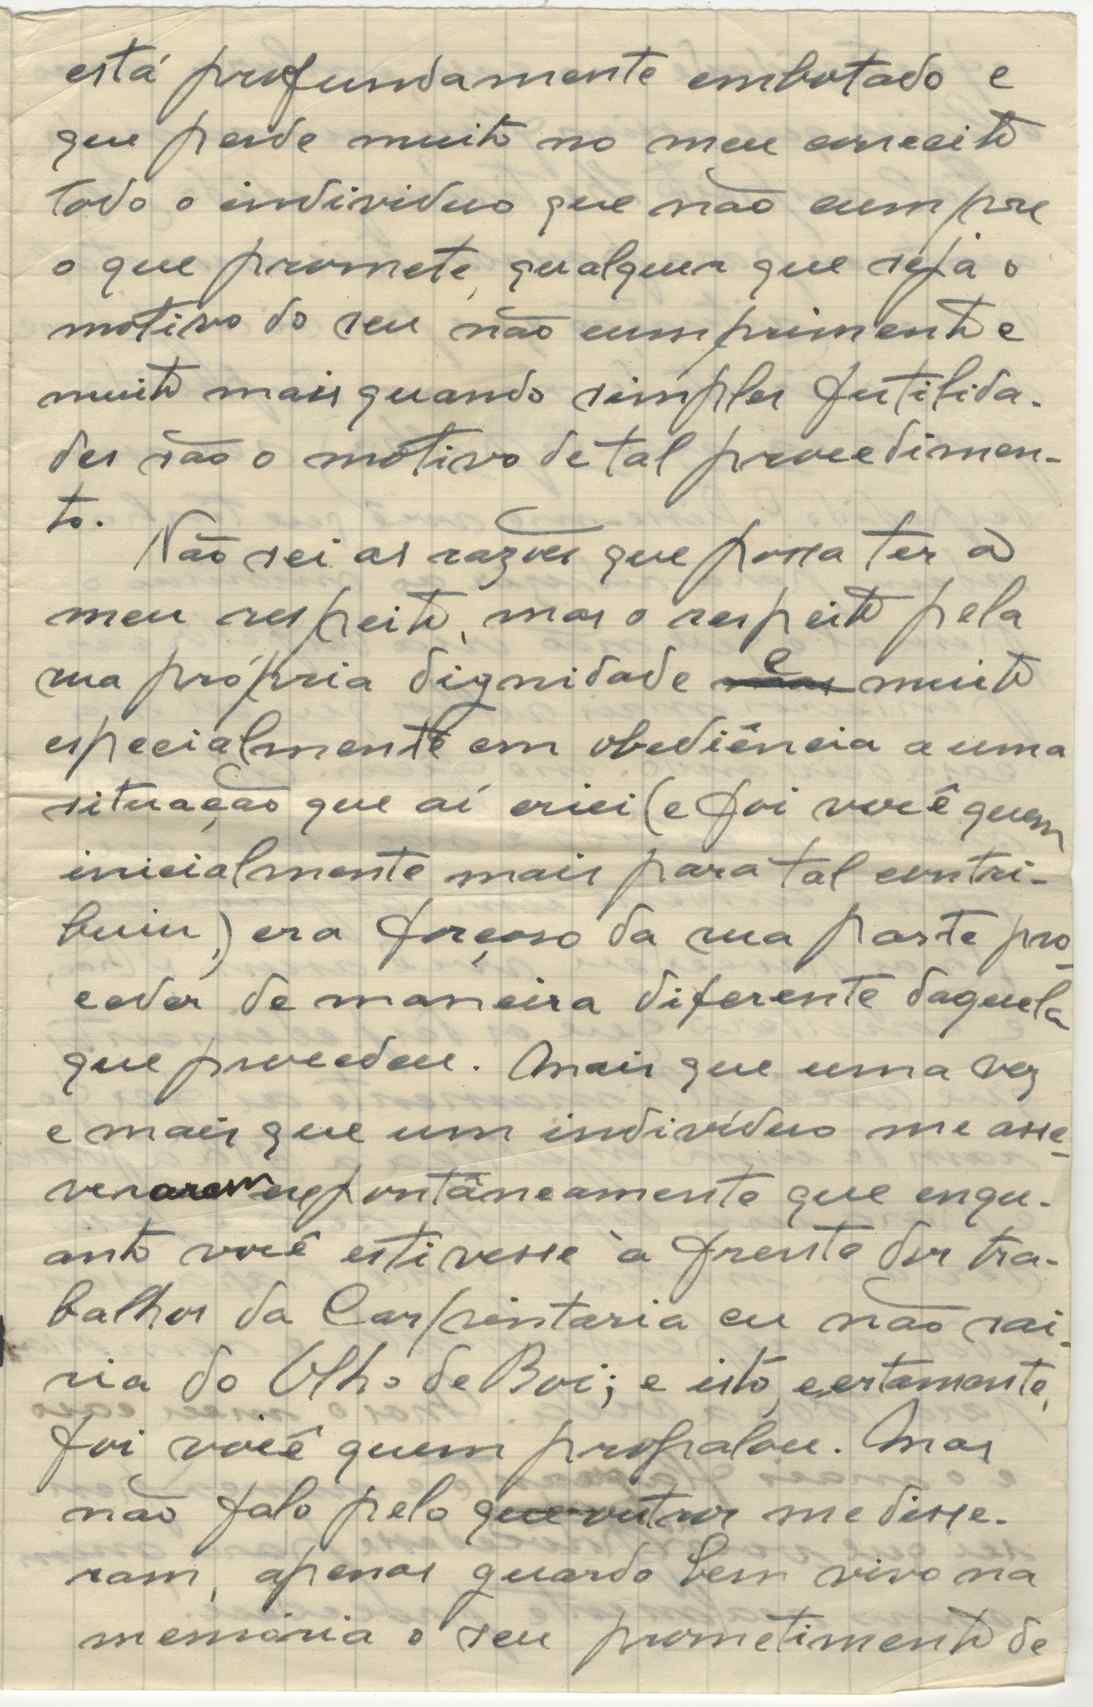 está profundamente embotado e
que perde muito no meu conceito
todo o individuo que não cumpre
o que promete, qualquer que seja o
motivo do seu não cumprimento e
muito mais quando simples futilida-
des são o motivo de tal procedimen-
to.
Não sei as razões que possa ter a
meu respeito, mas o respeito pela
sua própria dignidade e muito
especialmente em obediência a uma
situação que aí criei (e foi você quem
inicialmente mais para tal contri-
buiu,) era forçoso da sua parte pro-
ceder de maneira diferente daquela
que procedeu. Mais que uma vez
e mais que um indivíduo me asse-
veraram espontâneamente que enqu-
anto você estivesse à frente dos tra-
balhos da Carpintaria eu não sai-
ria do Olho de Boi; e isto, certamente,
foi você quem propalou. Mas
não falo pelo que outros me disse-
ram, apenas guardo bem vivo na
memória o seu prometimento de